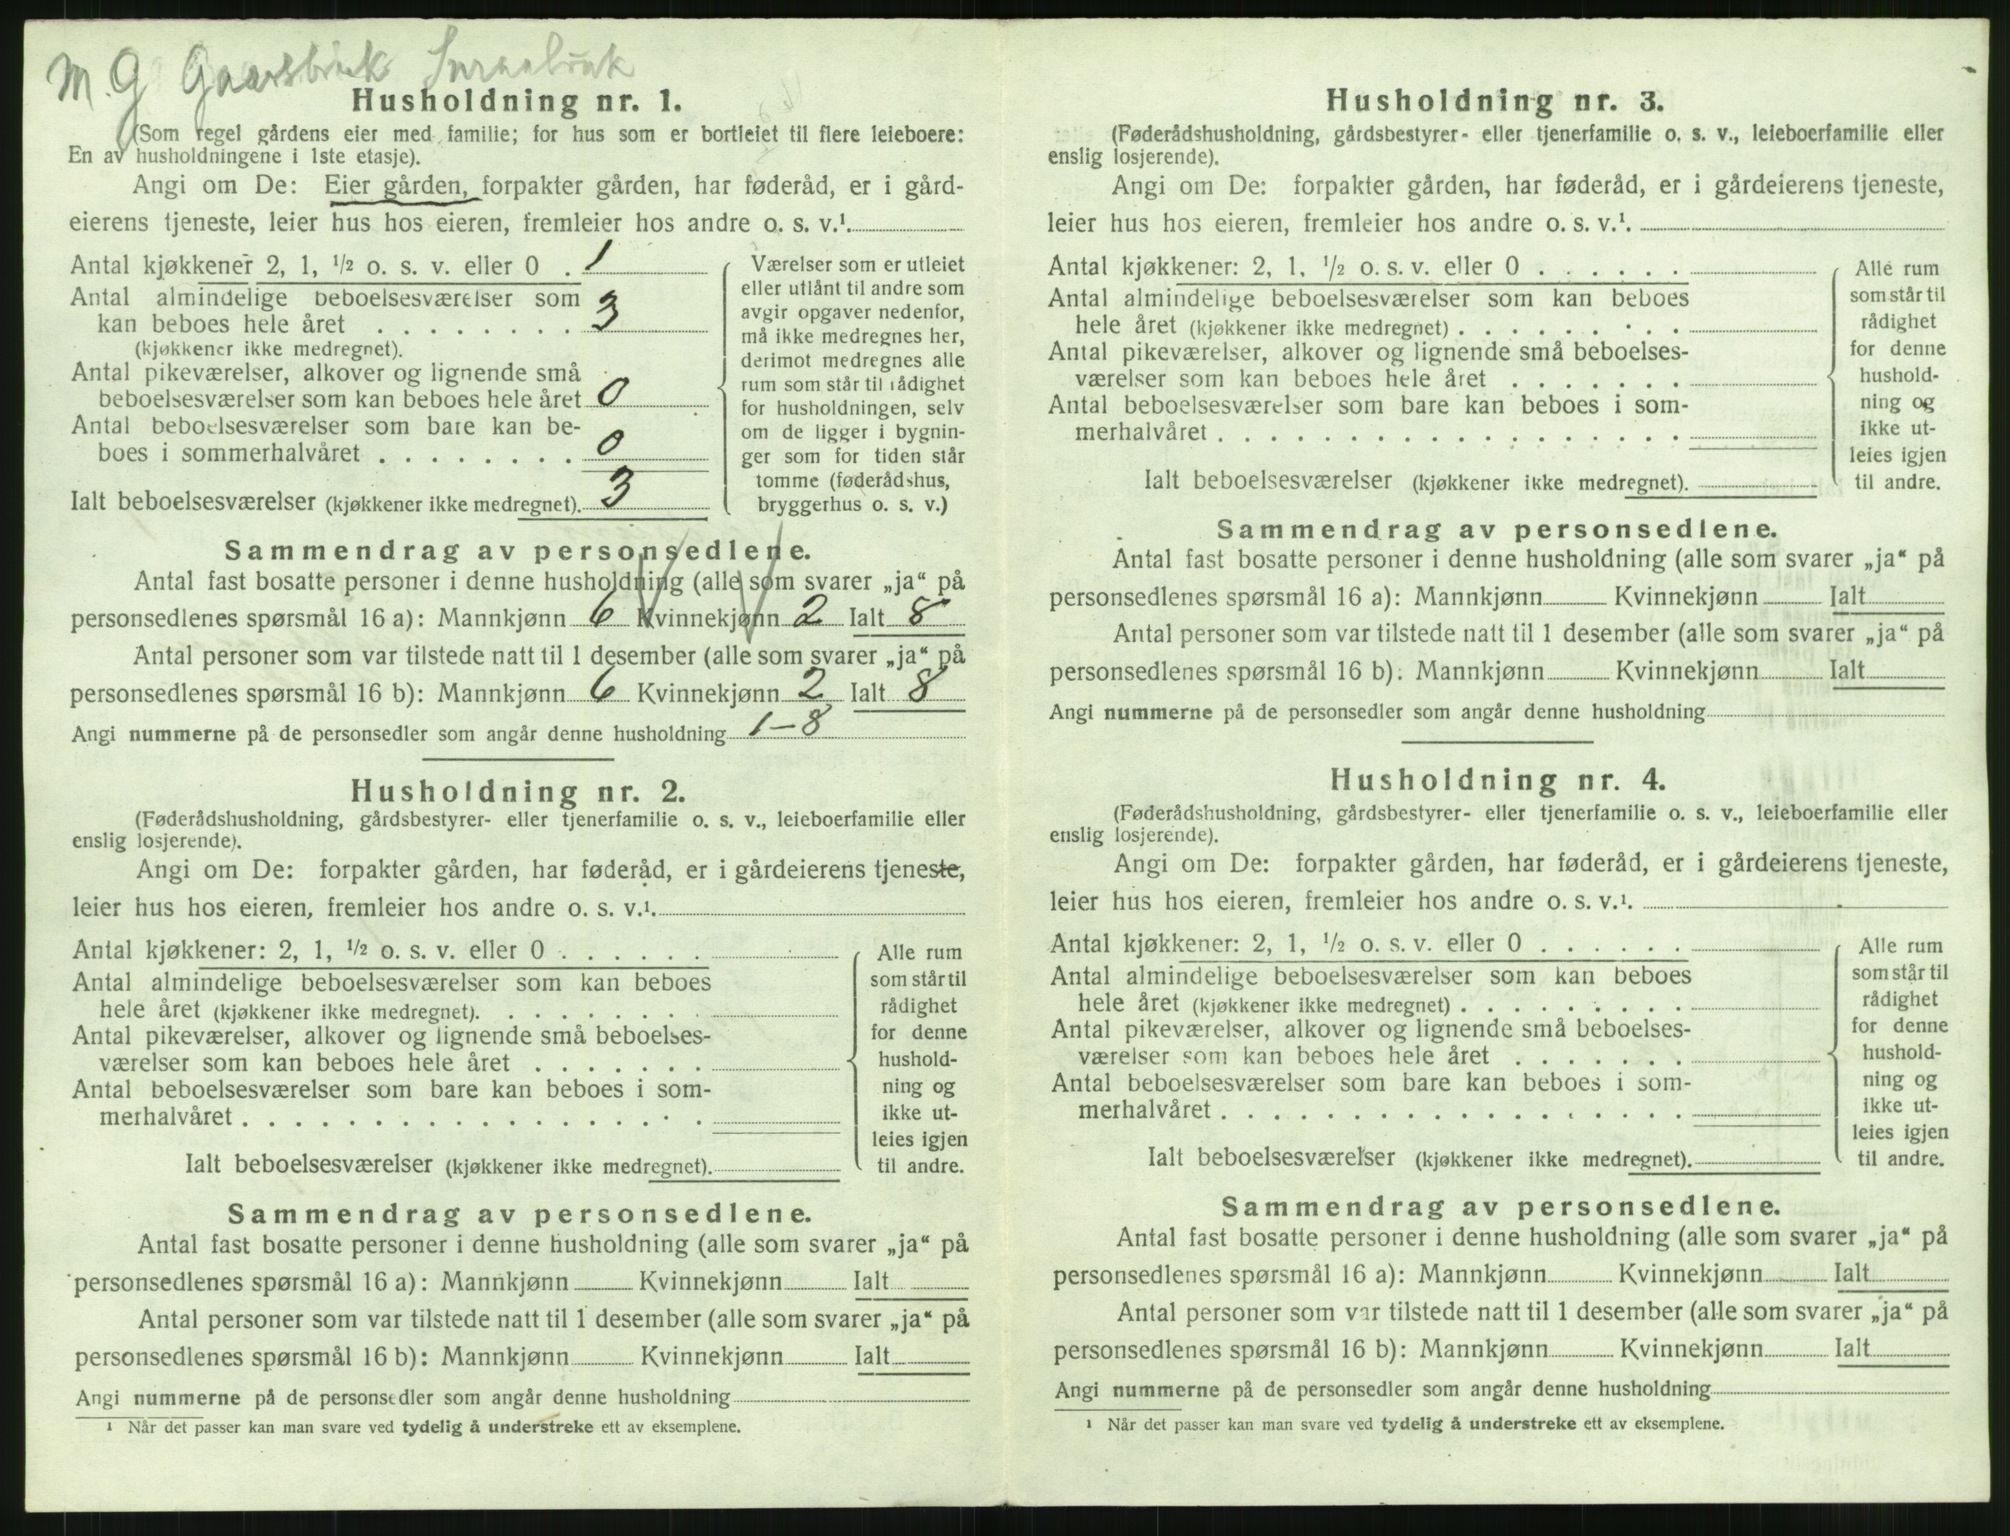 M. G Gaarsbruk Smaabruk
Husholdning nr. 1.
(Som regel gårdens eier med familie; for hus som er bortleiet til flere leieboere:
En av husholdningene i 1ste etasje).
Angi om De: Eier gården, forpakter gården, har føderåd, er i gård-
eierens tjeneste, leier hus hos eieren, fremleier hos andre o. s. v.¹
Antal kjøkkener 2, 1, ½ o. s. v. eller 0 . 1
Antal almindelige beboelsesværelser som
kan beboes hele året . . . . . . . . 3
(kjøkkener ikke medregnet).
Antal pikeværelser, alkover og lignende små
beboelsesværelser som kan beboes hele året 0
Antal beboelsesværelser som bare kan be-
boes i sommerhalvåret . . . . . . . . 0
Ialt beboelsesværelser (kjøkkener ikke medregnet). 3
Værelser som er utleiet
eller utlånt til andre som
avgir opgaver nedenfor,
må ikke medregnes her,
derimot medregnes alle
rum som står til rådighet
for husholdningen, selv
om de ligger i bygnin-
ger som for tiden står
tomme (føderådshus,
bryggerhus o. s. v.)
Sammendrag av personsedlene.
Antal fast bosatte personer i denne husholdning (alle som svarer „ja“ på
personsedlenes spørsmål 16 a): Mannkjønn 6 Kvinnekjønn 2 Ialt 8
Antal personer som var tilstede natt til 1 desember (alle som svarer „ja“ på
personsedlenes spørsmål 16 b): Mannkjønn 6 Kvinnekjønn 2 Ialt 8
Angi nummerne på de personsedler som angår denne husholdning 1-8
Husholdning nr. 2.
(Føderådshusholdning, gårdsbestyrer- eller tjenerfamilie o. s. v., leieboerfamilie eller
enslig losjerende).
Angi om De: forpakter gården, har føderåd, er i gårdeierens tjeneste,
leier hus hos eieren, fremleier hos andre o. s. v.¹.
Antal kjøkkener: 2, 1, ½ o. s. v. eller 0 . . . . . .
Antal almindelige beboelsesværelser som kan beboes
hele året (kjøkkener ikke medregnet). . . . . . . . .
Antal pikeværelser, alkover og lignende små beboelses-
værelser som kan beboes hele året . . . . . . .
Antal beboelsesværelser som bare kan beboes i som-
merhalvåret . . . . . . . . . . . . . . . . . .
Ialt beboelsesværelser (kjøkkener ikke medregnet).
Alle rum
som står til
rådighet
for denne
hushold-
ning og
ikke ut-
leies igjen
til andre.
Sammendrag av personsedlene.
Antal fast bosatte personer i denne husholdning (alle som svarer „ja“ på
personsedlenes spørsmål 16 a): Mannkjønn Kvinnekjønn Ialt
Antal personer som var tilstede natt til 1 desember (alle som svarer „ja“ på
personsedlenes spørsmål 16 b): Mannkjønn Kvinnekjønn Ialt
Angi nummerne på de personsedler som angår denne husholdning
¹ Når det passer kan man svare ved tydelig å understreke ett av eksemplene.
Husholdning nr. 3.
(Føderådshusholdning, gårdsbestyrer- eller tjenerfamilie o. s. v., leieboerfamilie eller
enslig losjerende).
Angi om De: forpakter gården, har føderåd, er i gårdeierens tjeneste,
leier hus hos eieren, fremleier hos andre o. s. v.¹.
Antal kjøkkener: 2, 1, ½ o. s. v. eller 0 . . . . . .
Antal almindelige beboelsesværelser som kan beboes
hele året (kjøkkener ikke medregnet) . . . . . . . . .
Antal pikeværelser, alkover og lignende små beboelses-
værelser som kan beboes hele året . . . . . . .
Antal beboelsesværelser som bare kan beboes i som-
merhalvåret . . . . . . . . . . . . . . . . . .
Ialt beboelsesværelser (kjøkkener ikke medregnet).
Alle rum
som står til
rådighet
for denne
hushold-
ning og
ikke ut-
leies igjen
til andre.
Sammendrag av personsedlene.
Antal fast bosatte personer i denne husholdning (alle som svarer „ja“ på
personsedlenes spørsmål 16 a): Mannkjønn Kvinnekjønn Ialt
Antal personer som var tilstede natt til 1 desember (alle som svarer „ja“ på
personsedlenes spørsmål 16 b): Mannkjønn Kvinnekjønn Ialt
Angi nummerne på de personsedler som angår denne husholdning
Husholdning nr. 4.
(Føderådshusholdning, gårdsbestyrer- eller tjenerfamilie o. s. v., leieboerfamilie eller
enslig losjerende).
Angi om De: forpakter gården, har føderåd, er i gårdeierens tjeneste,
leier hus hos eieren, fremleier hos andre o. s. v.¹.
Antal kjøkkener: 2, 1, ½ o. s. v. eller 0 . . . . . .
Antal almindelige beboelsesværelser som kan beboes
hele året (kjøkkener ikke medregnet) . . . . . . . . .
Antal pikeværelser, alkover og lignende små beboelses-
værelser som kan beboes hele året . . . . . . .
Antal beboelsesværelser som bare kan beboes i som-
merhalvåret . . . . . . . . . . . . . . . . . .
Ialt beboelsesværelser (kjøkkener ikke medregnet).
Alle rum
som står til
rådighet
for denne
hushold-
ning og
ikke ut-
leies igjen
til andre.
Sammendrag av personsedlene.
Antal fast bosatte personer i denne husholdning (alle som svarer „ja“ på
personsedlenes spørsmål 16 a): Mannkjønn Kvinnekjønn Ialt
Antal personer som var tilstede natt til 1 desember (alle som svarer „ja“ på
personsedlenes spørsmål 16 b): Mannkjønn Kvinnekjønn Ialt
Angi nummerne på de personsedler som angår denne husholdning
¹ Når det passer kan man svare ved tydelig å understreke ett av eksemplene.